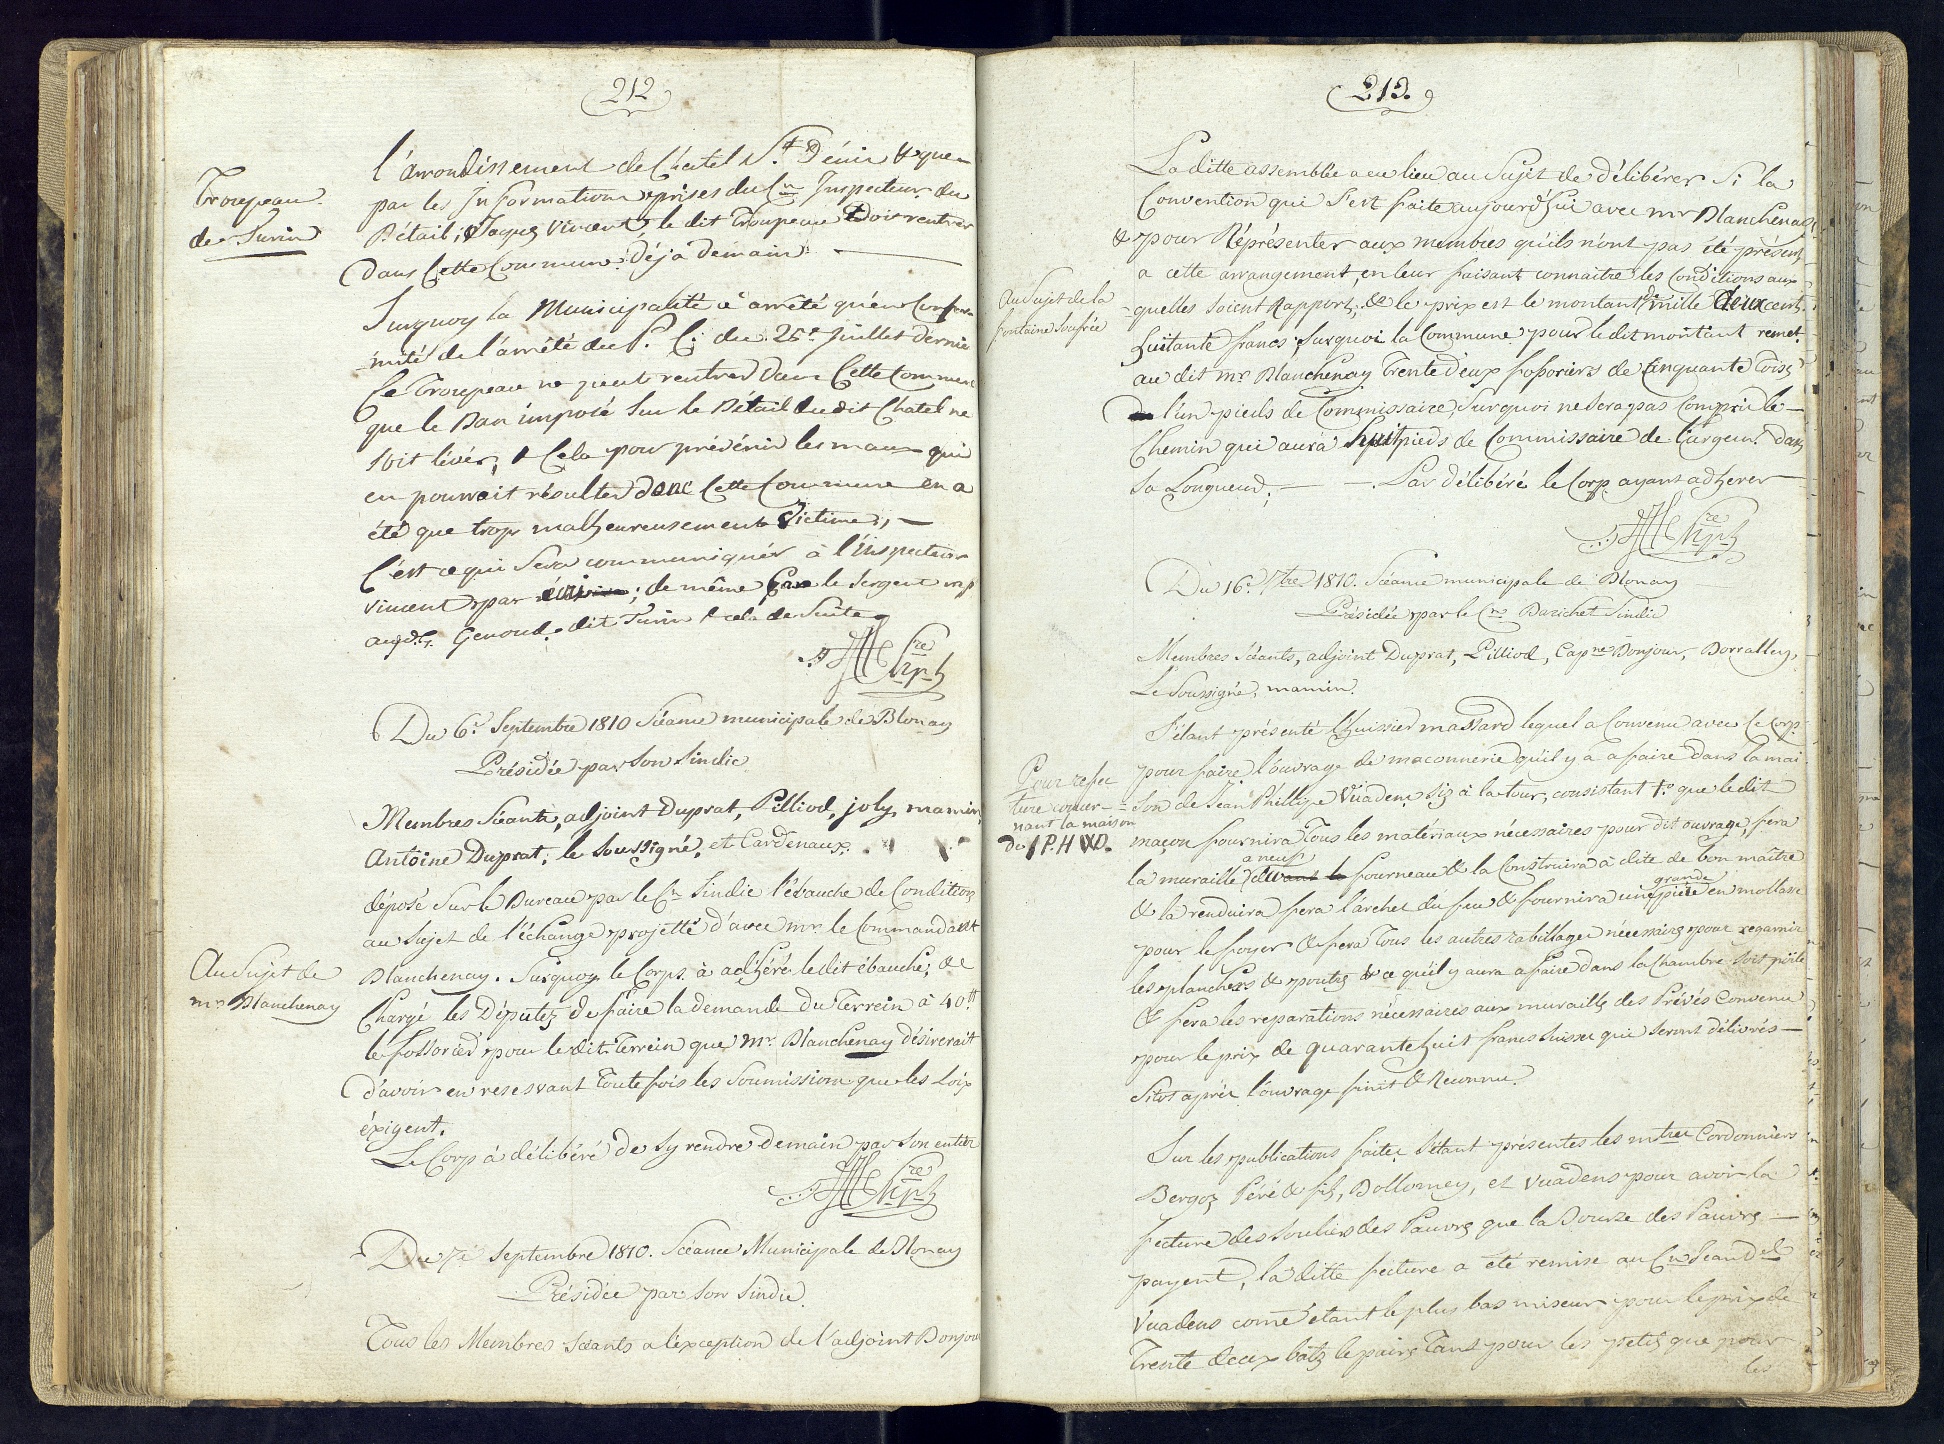 212
Troupeau
de Turin
l'arrondissement de Chatel St Dénis & que
par les Informations prises du Cn Inspecteur du
Bétail, Jaques Vincent, le dit Troupeau Doit rentrer
dans Cette Commune déja demain.
Surquoy la Municipalité à arrêté qu'en Confor-
-mité de l'arrêté du P. C. du 25e Juillet dernier
Ce Troupeau ne peut rentrer dans Cette Commune
que le Ban imposé sur le Bétail dudit Chatel ne
soit lévér, & Cela pour prévénir les maux qui
en pouroit résulter donc Cette Commune en a
été que trop malheureusement Victime, —
C'est ce qui Sera communiquér à l'inspecteur
Vincent par ; de même par le Sergent
Genoud dit Turin & cela de Suite
Sre
Du 6e Septembre 1810 Séance municipale de Blonay
Présidée par Son Sindic
Membres Séants, adjoint Duprat, Pilliod, joly, mamin,
Antoine Duprat, le Soussigné, et Cardenaux.
Au Sujet de
mr Blanchenay
déposé Sur le Bureau par le Cn Sindic l'ébauche de Conditions
au Sujet de l'échange projetté d'avec mr le Commandant
Blanchenay. Surquoy le Corps à adhéré ledit ébauche, &
Chargé les Députez de faire la demande du Terrein à 40 ₶
le fossorier pour le dit Terrein que Mr Blanchenay désireroit
d'avoir en reservant Toutefois les Soumissions que les Loix
éxigent.
Le Corp à délibéré de sy rendre demain par Son entier
Sre
Du 7e Septembre 1810. Séance Municipale de Blonay
Présidée par Son Sindic
Tous les Membres Séants a l'exception de l'adjoint Bonjour
213.
La ditte assemblée a eu lieu au Sujet de délibérer Si la
Convention qui S'est faite aujourd'hui avec mr Blanchenay
& pour Réprésenter aux membres qu'ils n'ont pas été présent
a cette arrangement, en leur faisant connaitre les Conditions aux
Au Sujet de la
fontaine Soufrée
-quelles Soient Rapport, & le prix est le montant de mille deux cent
huitante francs, Surquoi la Commune pour le dit montant remet
au dit mr Blanchenay Trente deux fossoriers de Cinquante Toises
l'un pieds de Commissaire, Surquoi ne Sera pas Compris le —
Chemin qui aura huit pieds de Commissaire de Largeur dans
Sa Longueur; — Par délibéré le Corp ayant adherer —
Sre
Du 16e 7bre 1810. Séance municipale de Blonay
Présidée par le Cn Barichet Sindic
Membres Séants, adjoint Duprat, Pilliod, Capne Bonjour, Borralley,
Le Soussigné, mamin.
Pour refec
ture concer-
nant la maison
du J P. H VD.
S'étant présenté l'huissier massard lequel a Convenu avec le Corp
pour faire l'ouvrage de maconnerie qu'il y a a faire dans la mai
Son de Jean Phillipe Vuadens Sis à la tour, consistant 1o que le dit
maçon fournira Tous les matériaux nécessaires pour dit ouvrage, fera
a neuf
la muraille devant le fourneau & la Construira à dite de bon maître
grande
& la renduira fera l'archet du feu & fournira une piéce en mollasse
pour le foyer & fera Tous les autres rabillages nécessaires pour regarnir
les planchers & poutes & ce qu'il y aura a faire dans la Chambre Soit poile
& fera les reparations nécessaires aux murailles des Privés Convenu
pour le prix de quarante huit francs Suisse qui Seront délivrés —
Sitot aprés l'ouvrage finit & Reconnu.
Sur les publications faites S'étant présentes les mtres Cordonniers
Bergoz Péré & fils, Dollorney, et Vuadens pour avoir la
fecture des souliers des Pauvres que la Bourse des Pauvres —
payent, la ditte fecture a été remise au Cn Jean Dd
Vuadens come étant le plus bas miseur pour le prix de
Trente deux batz le paire Tant pour les petits que pour
les